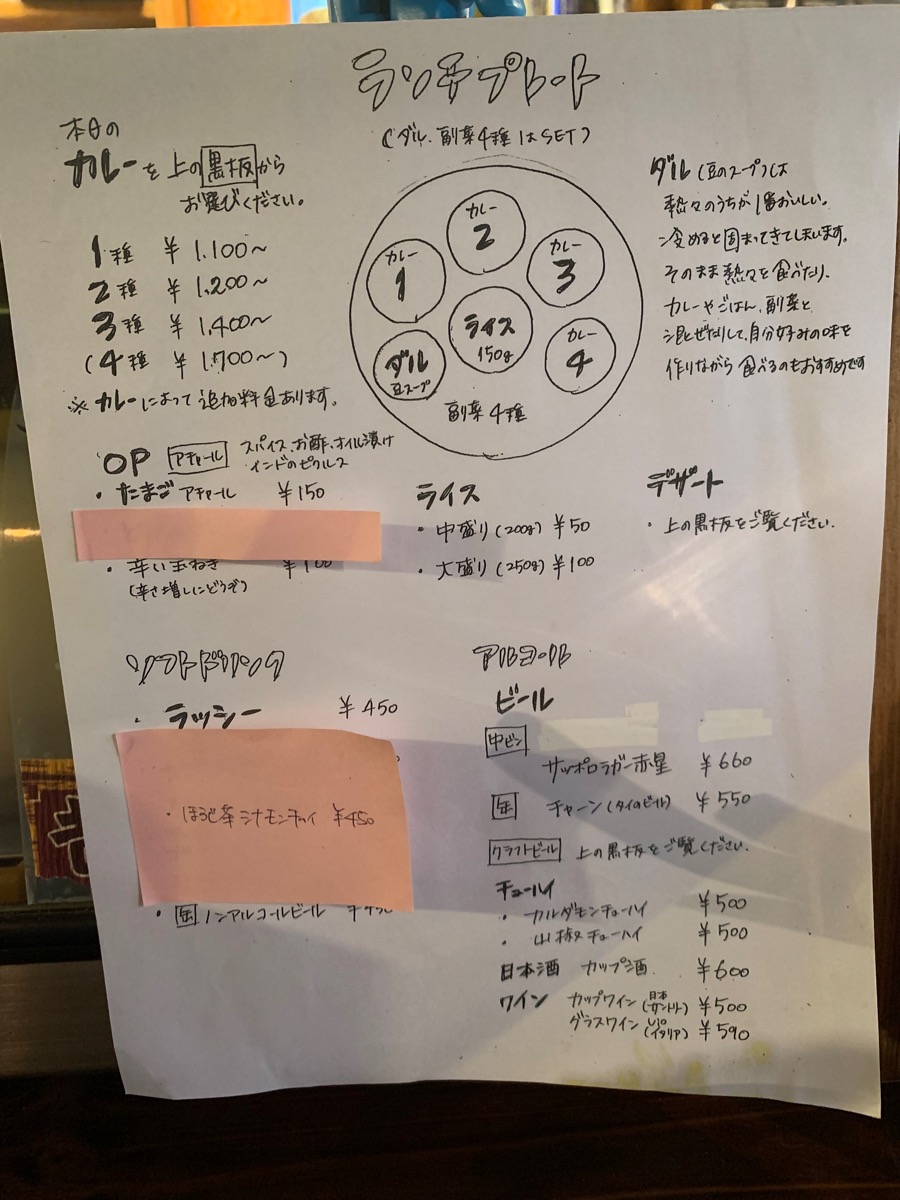 ランチプレート
(ダル、副菜4種はSET)
本日の
カレーを上の黒板から
お選びください。
1種 ¥1,100〜
2種 ¥1,200〜
3種 ¥1,400〜
(4種 ¥1,700〜)
※カレーによって追加料金あります。
カレー
1
カレー
2
カレー
3
カレー
4
ライス
150g
ダル
豆スープ
副菜4種
ダル(豆のスープ)は
熱々のうちが1番おいしい。
冷めると固まってきてしまいます。
そのまま熱々を食べたり、
カレーやごはん、副菜と
混ぜたりして、自分好みの味を
作りながら食べるのもおすすめです
OP アチャール スパイス、お酢、オイル漬け
インドのピクルス
・たまごアチャール ¥150
・辛い玉ねぎ ¥100
(辛さ増しにどうぞ)
ライス
・中盛り(200g) ¥50
・大盛り(250g) ¥100
デザート
・上の黒板をご覧ください。
ソフトドリンク
・ラッシー ¥450
・ほうじ茶シナモンチャイ ¥450
・缶 ノンアルコールビール
アルコール
ビール
中ビン
サッポロラガー赤星 ¥660
缶 チャーン(タイのビール) ¥550
クラフトビール 上の黒板をご覧ください。
チューハイ
・カルダモンチューハイ ¥500
・山椒チューハイ ¥500
日本酒 カップ酒 ¥600
ワイン カップワイン(日本サントリー) ¥500
グラスワイン(イタリア) ¥590